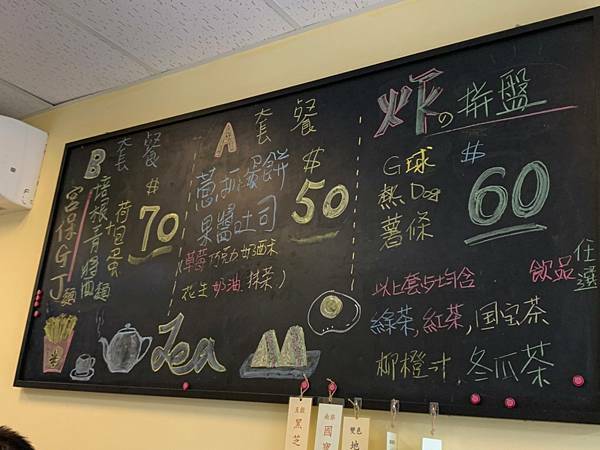 炸の拼盤
G球
熱Dog
薯條
$60
以上套餐均含 飲品任選
綠茶,紅茶,国宝茶
柳橙汁,冬瓜茶
A套餐
蔥油蛋餅
果醬吐司
$50
(草莓 巧克力 奶酒末
花生 奶油 抹茶)
B套餐
宮保GJ麵
培根青醬麵
+荷包蛋
$70
Tea
黑芝
國寶
雙色
地